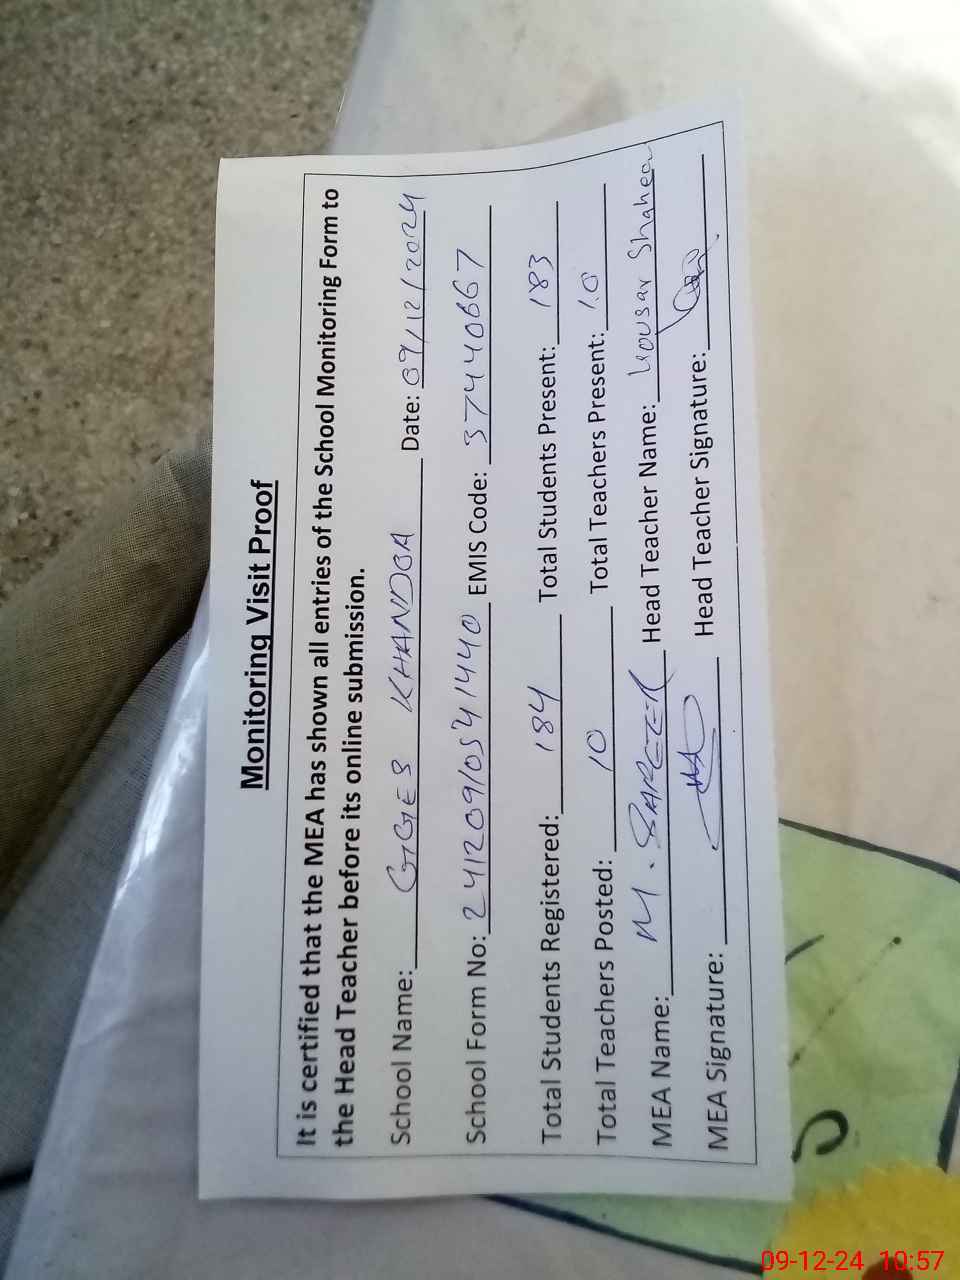 Monitoring Visit Proof
It is certified that the MEA has shown all entries of the School Monitoring Form to
the Head Teacher before its online submission.
School Name: GGES KHANDOA Date: 09/12/2024
School Form No: 24120910541440 EMIS Code: 37440667
Total Students Registered: 184 Total Students Present: 183
Total Teachers Posted: 10 Total Teachers Present: 10
MEA Name: M. Head Teacher Name: Kousar Shaheen
MEA Signature: Head Teacher Signature:
09-12-24 10:57